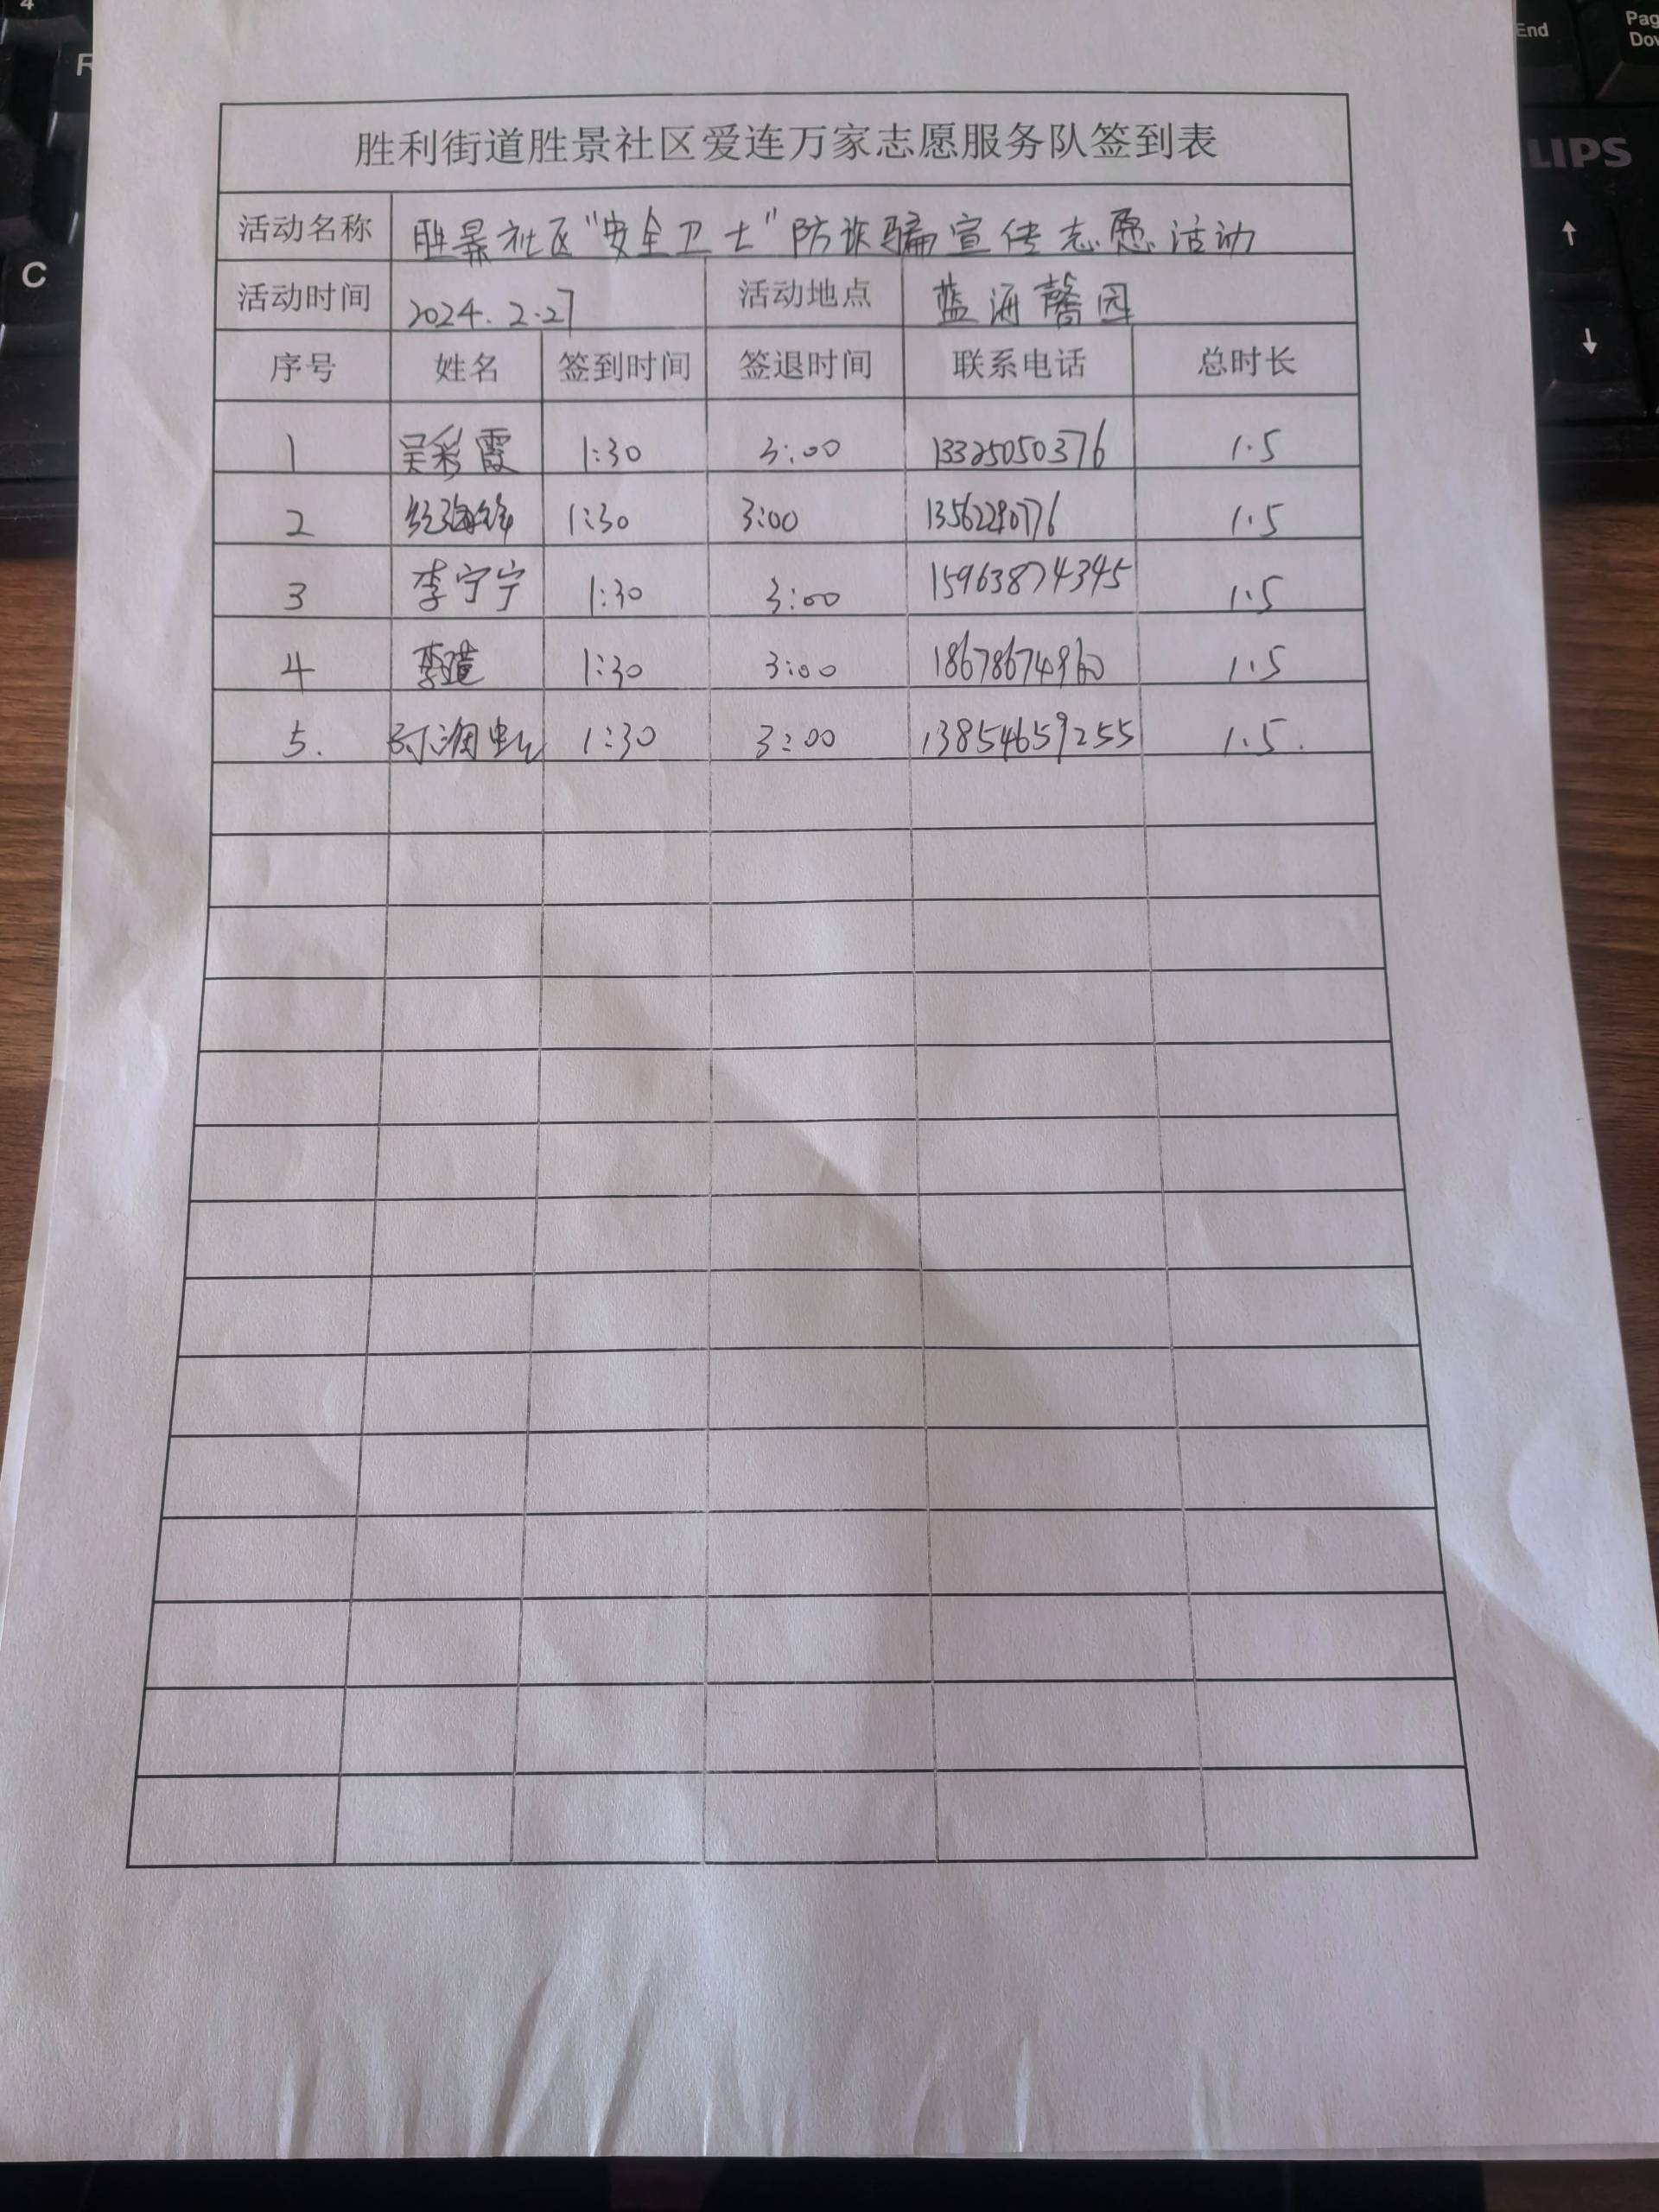 4
R
End
Pag
Dow
C
LIPS
↑
↓
胜利街道胜景社区爱连万家志愿服务队签到表
活动名称 胜景社区“安全卫士”防诈骗宣传志愿活动
活动时间 2024.2.27 活动地点 蓝海馨园
序号 姓名 签到时间 签退时间 联系电话 总时长
1 吴彩霞 1:30 3:00 13325050376 1.5
2 1:30 3:00 1.5
3 李宁宁 1:30 3:00 15963874345 1.5
4 李 1:30 3:00 18678674960 1.5
5. 1:30 3:00 13854659255 1.5.